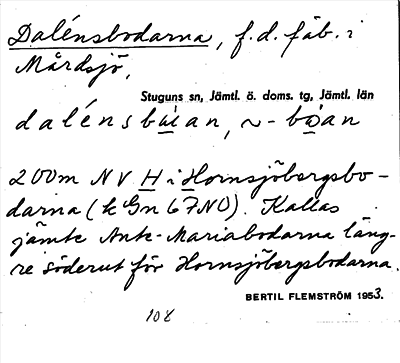 Dalénsbodarna, f.d. fäb. i
Mårdsjö,
Stuguns sn, Jämtl. ö. doms. tg, Jämtl. län
dalénsbùan, ~-bòan
200m NV H i Hornsjöbergsbo-
darna (k Gn 67NO). Kallas
jämte Ante-Mariabodarna läng-
re söderut för Hornsjöbergsbodarna.
BERTIL FLEMSTRÖM 1953.
108